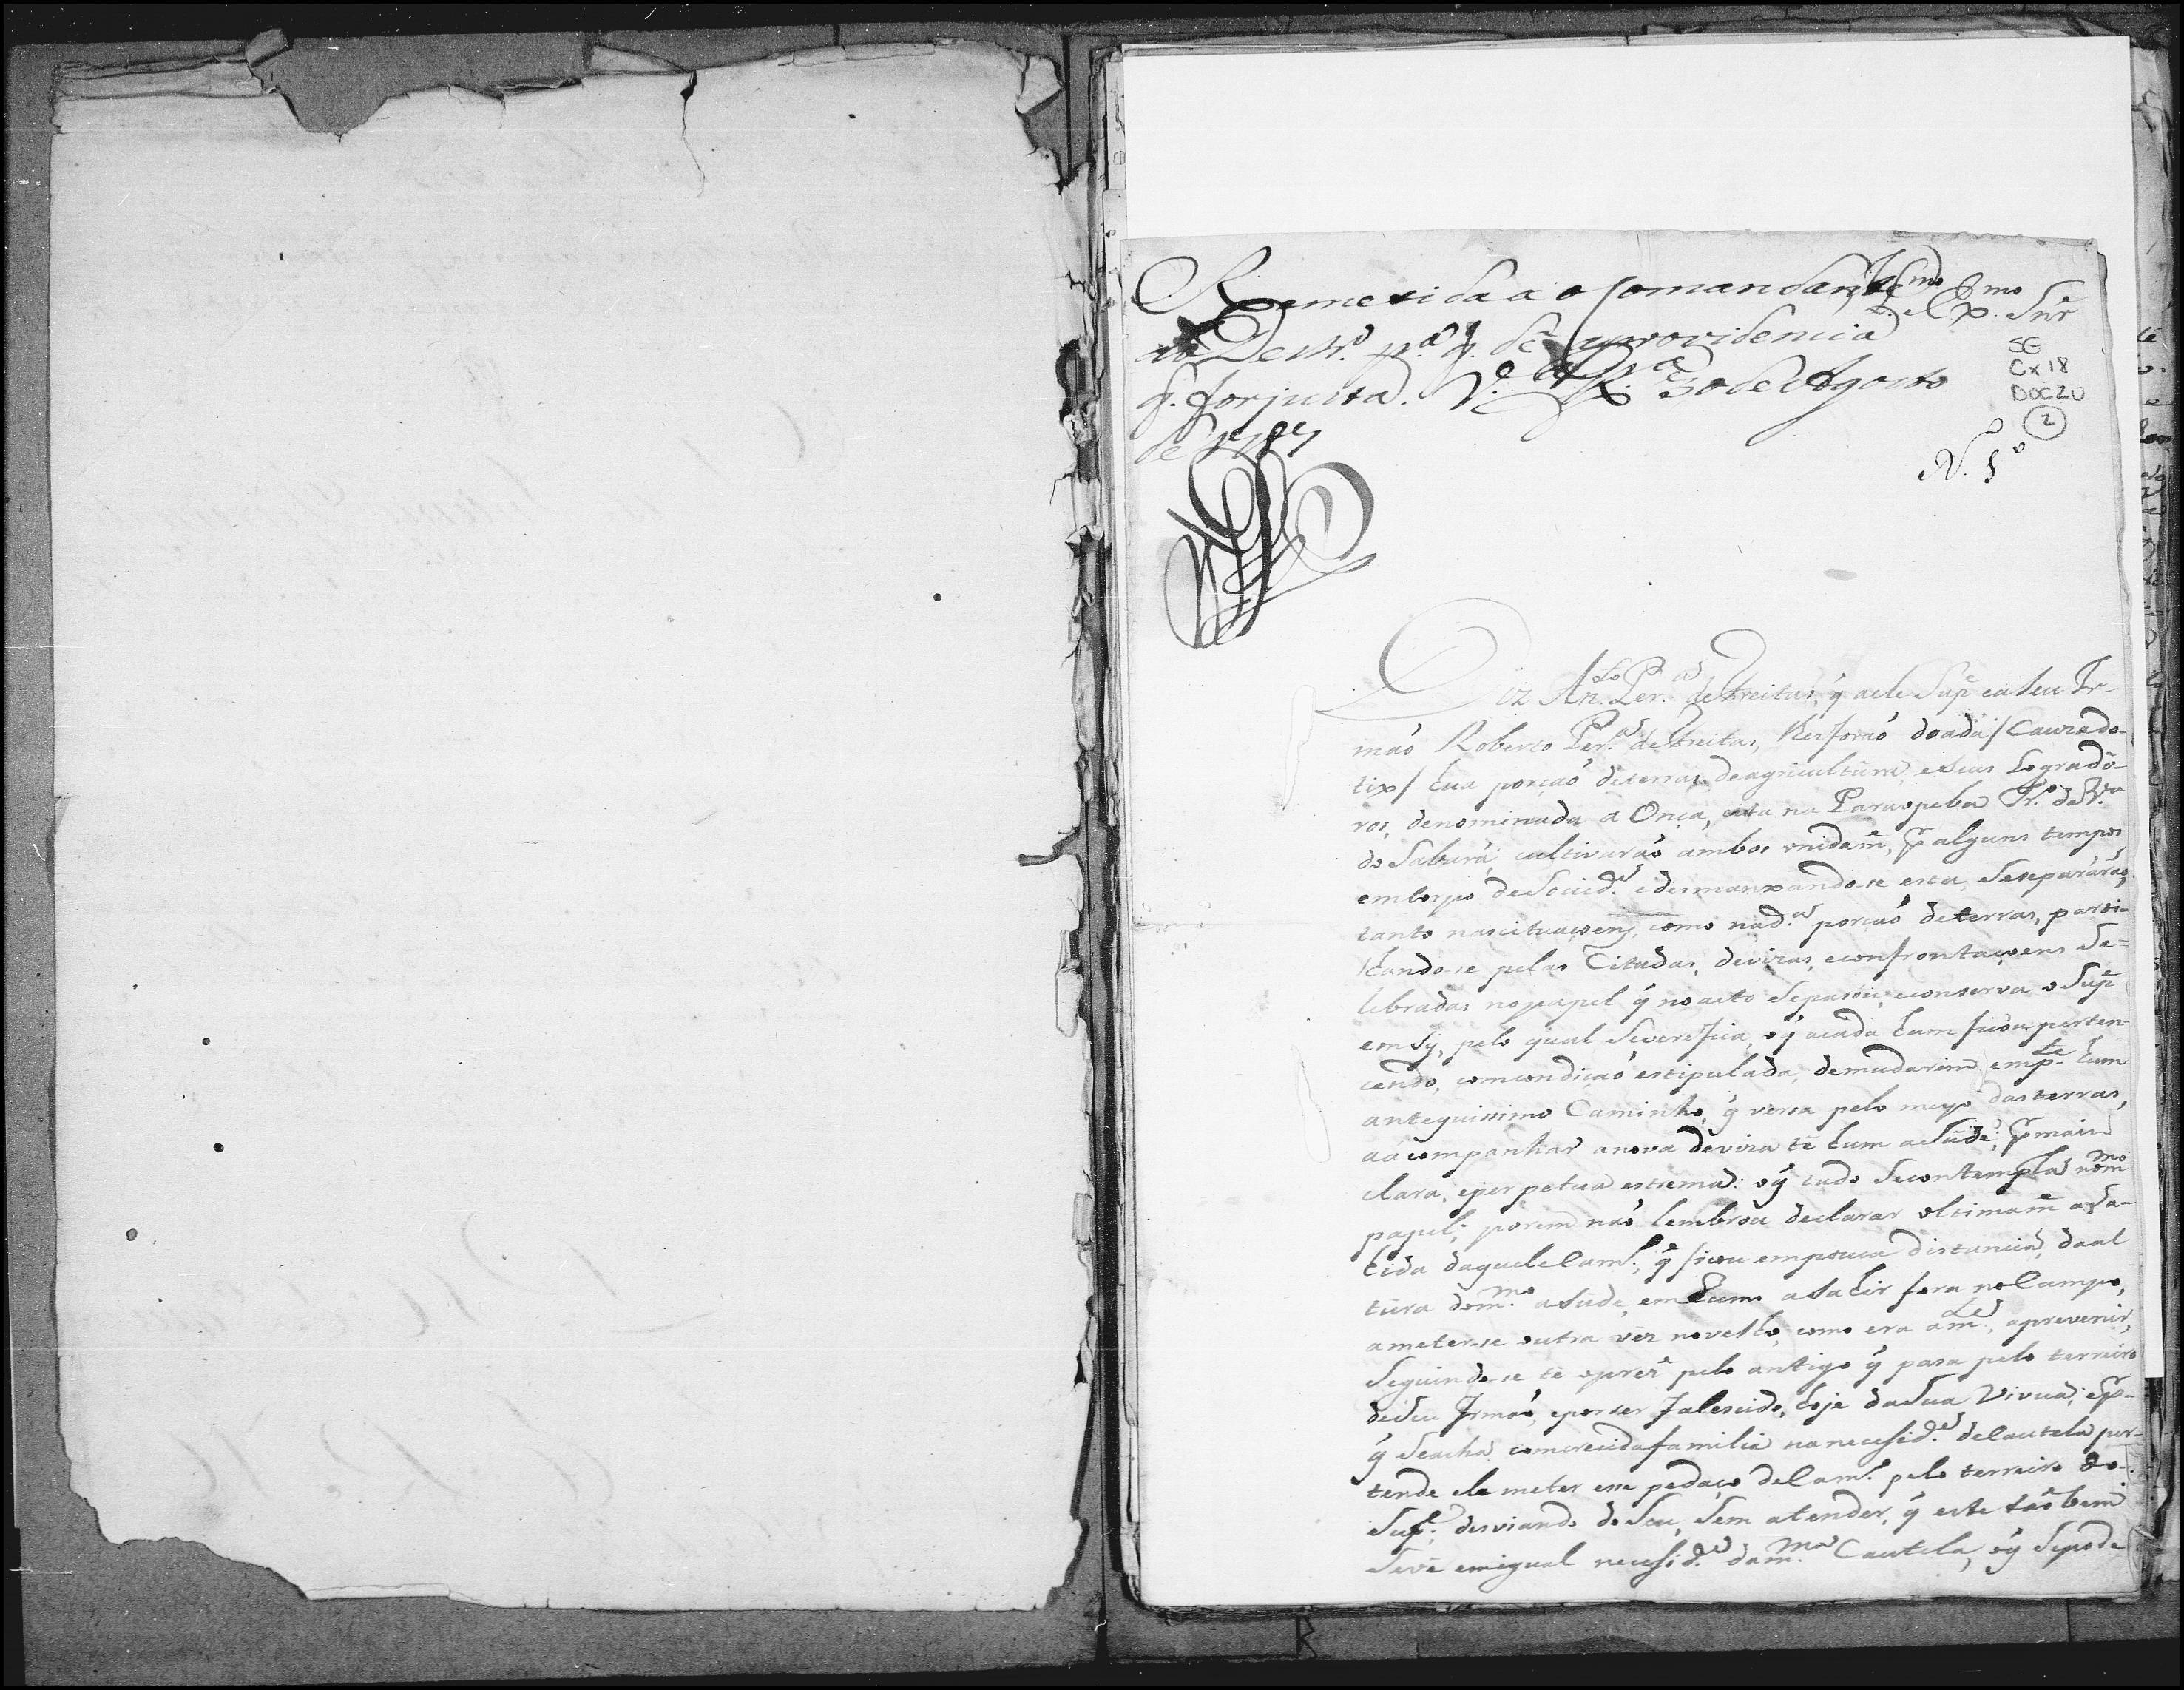 Remetida ao Comandante
do Destr.º p.ª q. dê a providencia
q. for justa. V.ª R.ª 30 de Agosto
de 1787
Ill.mo Ex.mo Snr
SG
Cx 18
DOC 20
2
N. 1º
Diz An.to Per.ª de Freitas, q̃ a ele Sup.e e a seu Ir-
maõ Roberto Per.ª de Freitas, lhes foraõ doada/Cauzado-
tix/ hua porçaõ de terras de agricultura, e seus Logradó-
ros, denominada a Onça, cita na Paraopeba Tr.º da V.ª
do Sabará; cultivaraõ ambos unidam.e, p.r alguns tempos
em Corpo de Socied.e e desmanxando-se esta, se separáraõ,
tanto nas cituaçoens, como na d.ª porçaõ de terras, parti-
lhando-se pelas Citadas, devizas, e confrontaçoens Se-
lebradas no papel q̃ no acto se pasou, e conserva o Sup.e
em Sy, pelo qual se verefica, o q̃ a cada hum ficou perten-
cendo, com condiçaõ estipulada, de mudarem em p.te hum
anteguissimo Caminho, q̃ versa pelo meyo das terras,
a acompanhar a nova deviza té hum asúde, p.r mais
clara, e perpetua estrema: o q̃ tudo se contempla no m.mo
papel; porem naõ lembrou declarar ultimam.e a sa-
hida daquele Cam.º, q̃ ficou em pouca distancia, da al
túra do m.mo asúde, em rumo a sahir fora no Campo,
a meter-se outra vez no velho, como era a m.te, a prevenir,
Seguindo-se té o prez.e pelo antigo q̃ pasa pelo terreiro
de seu Irmaõ, e por ser falescido, hoje da sua Viuva; e p.r-
q̃ se acha com crecida familia na necesid.e de Cautela per-
tende ela meter em pedaço de Cam.º pelo terreiro do
Sup.e, desviando do Seu, Sem atender, q̃ este taõbem
Se vé em igual necesid.e da m.ma Cautela, o q̃ se pode